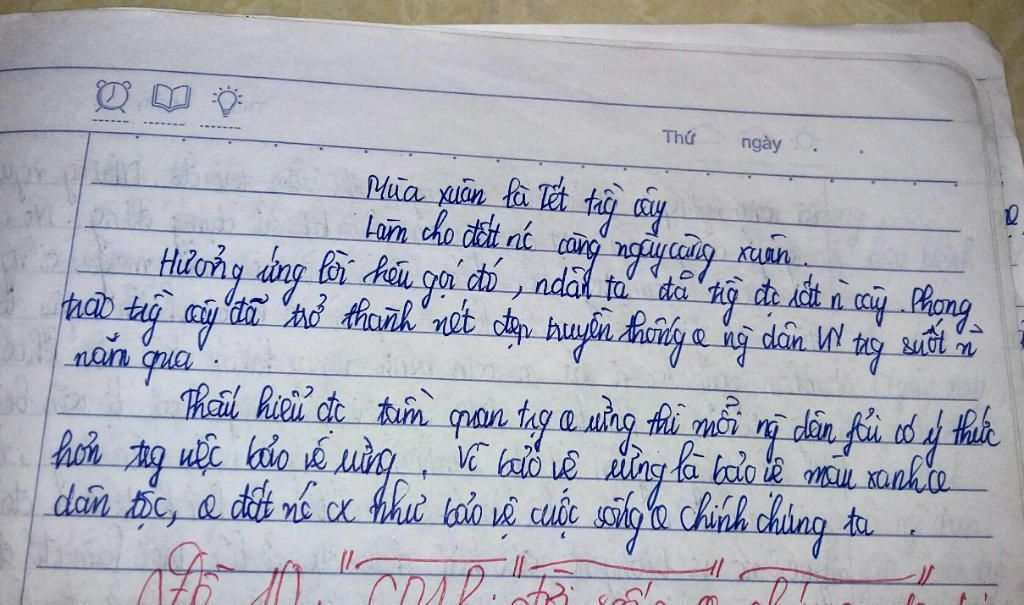 Thứ ngày
Mùa xuân là Tết tṛg̀ cây
Làm cho đất nc' càng ngày càng xuân.
Hưởng ứng lời kêu gọi đó, ndân ta đã tṛg̀ đc rất n` cây. Phong
trào tṛg̀ cây đã trở thành nét đẹp truyền thống ng dân VN tṛg suốt n`
năm qua.
Thấu hiểu đc tầm quan tṛg rừng thì mỗi ng dân fải có ý thức
hơn tṛg việc bảo vệ rừng. Vì bảo vệ rừng là bảo vệ màu xanh
dân tộc, đất nc' cx như bảo vệ cuộc sống chính chúng ta.
Đề 10: